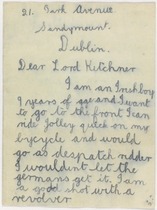 21. Park Avenue
Sandymount.
Dublin.
Dear Lord Kitchner
I am an Irish boy
9 years of age and I want
to go to the front I can
ride jolley quick on my
bycycle and would
go as despatch ridder
I wouldint let the
germans get it. I am
a good shot with a
revolver